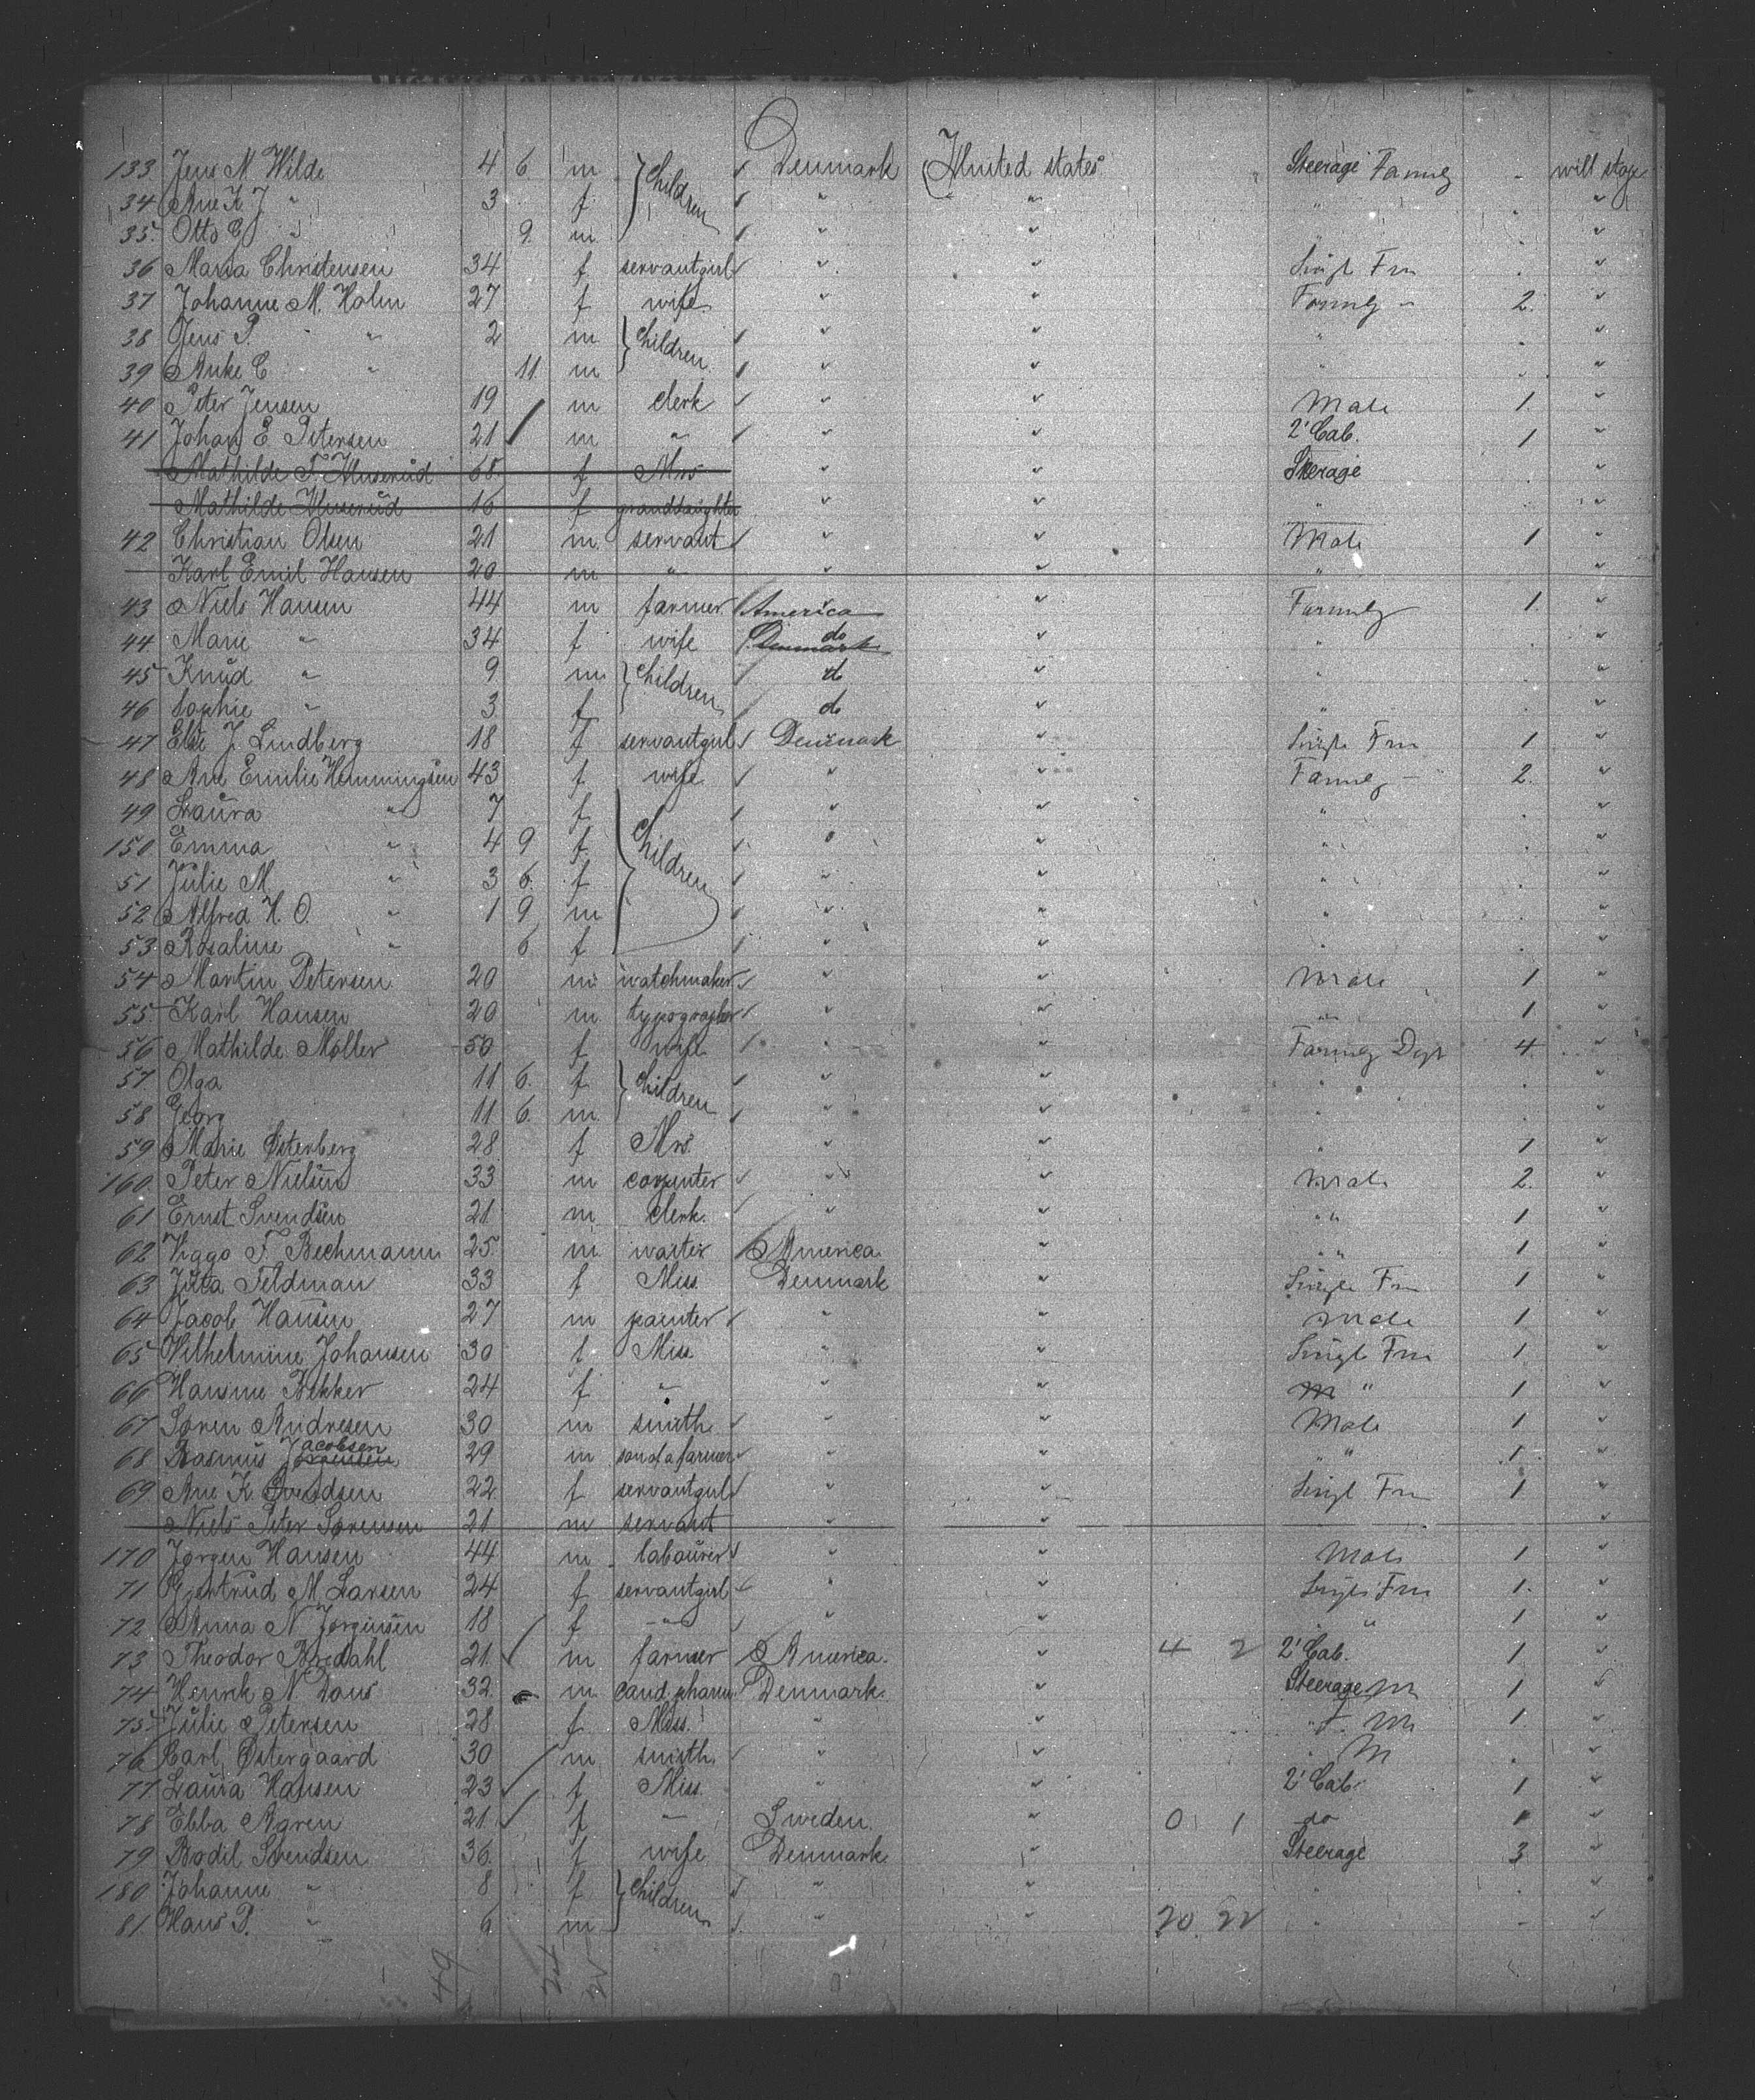 133 Jens N. Wilde 4 6 m } Children Denmark United states Steerage Family - will stay
34 Ane K. J. " 3 f " " " "
35 Otto C. " 9 m " " " "
36 Maria Christensen 34 f servantgirl " " Singl Fm "
37 Johanne M. Holm 27 f wife " " Family - 2 "
38 Jens P. " " 2 m } Children " " " "
39 Anke C. " 11 m " " " "
40 Peter Jensen 19 m clerk " " Male 1 "
41 Johan E. Petersen 21 m " " " 2' Cab. 1 "
Mathilde F. 68 f Mrs " " Steerage "
Mathilde 16 f granddaughter " " " "
42 Christian Olsen 21 m servant " " Male 1 "
Karl Emil Hansen 20 m " " " " "
43 Niels Hansen 44 m farmer America " Family 1 "
44 Marie " 34 f wife Denmark do " " "
45 Knud " 9 m } Children do " " "
46 Sophie " 3 f do " " "
47 Else J. Lindberg 18 f servantgirl Denmark " Single Fm 1 "
48 Ane Emilie Hemmingsen 43 f wife " " Family - 2 "
49 Laura " 7 f } Children " " " "
150 Emma " 4 9 f " " " "
51 Julie M. " 3 6 f " " " "
52 Alfred H. O. " 1 9 m " " " "
53 Rosaline " 6 f " " " "
54 Martin Petersen 20 m watchmaker " " Male 1 "
55 Karl Hansen 20 m typographer " " " 1 "
56 Mathilde Møller 50 f wife " " Family Dept 4 "
57 Olga 11 6 f } Children " " " "
58 Georg 11 6 m " " " "
59 Marie Østerberg 28 f Mrs. " " " 1 "
160 Peter Nielsen 33 m carpenter " " Male 2 "
61 Ernst Svendsen 21 m clerk " " " " 1 "
62 Viggo F. Bechmann 25 m waiter America " " " 1 "
63 Jutta Feldman 33 f Miss. Denmark " Single Fm 1 "
64 Jacob Hansen 27 m painter " " Male 1 "
65 Wilhelmine Johansen 30 f Miss. " " Singl Fm 1 "
66 Hansine Bekker 24 f " " " m " 1 "
67 Søren Andresen 30 m smith " " Male 1 "
68 Rasmus Jørgensen Jacobsen 29 m son of a farmer " " " 1 "
69 Ane K. Svendsen 22 f servantgirl " " Singl Fm 1 "
Niels Peter Sørensen 21 m servant " " "
170 Jørgen Hansen 44 m labourer " " Male 1 "
71 Gjertrud M. Larsen 24 f servantgirl " " Single Fm 1 "
72 Anna N. Jørgensen 18 f " " " " 1 "
73 Theodor Bredahl 21 m farmer America " 4 2 2' Cab. 1 "
74 Henrik N. Dons 32 m cand. pharm. Denmark " Steerage m 1 "
75 Julie Petersen 28 f Miss. " " 1 "
76 Carl Østergaard 30 m smith " " M "
77 Laura Hansen 23 f Miss. " " 2' Cab. 1 "
78 Ebba Agren 21 f " Sweden " 0 1 do 1 "
79 Bodil Svendsen 36 f wife Denmark " Steerage 3 "
180 Johanne " 8 f } Children " " " "
81 Hans P. " 6 m " " 20 22 " - "
49